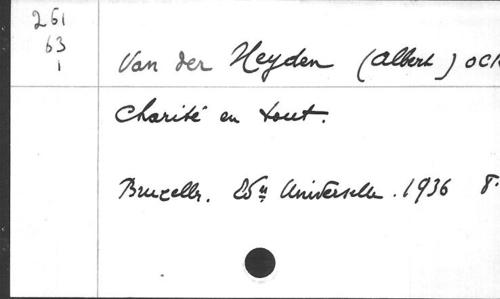 261
63
1
Van der Heyden (Albert) OCR
Charité en tout.
Bruxelles. Universelle. 1936 8.